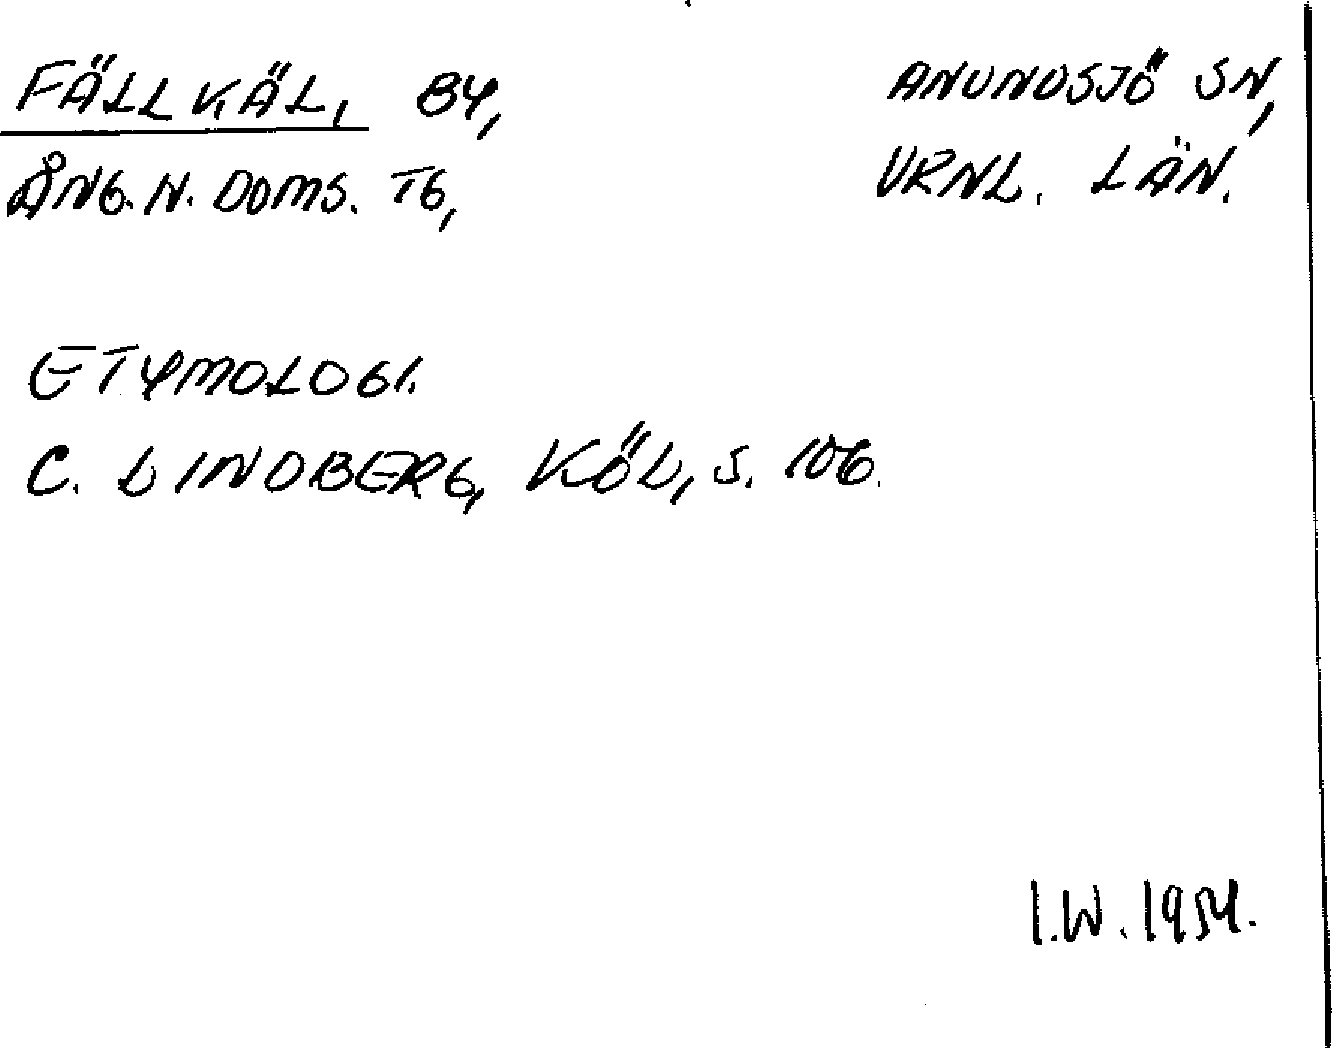 FÄLLKÄL, BY, ANUNDSJÖ SN,
ÅNG. N. DOMS. TG, VRNL. LÄN.
ETYMOLOGI.
C. LINDBERG, KÖL, S. 106.
I.W. 1954.